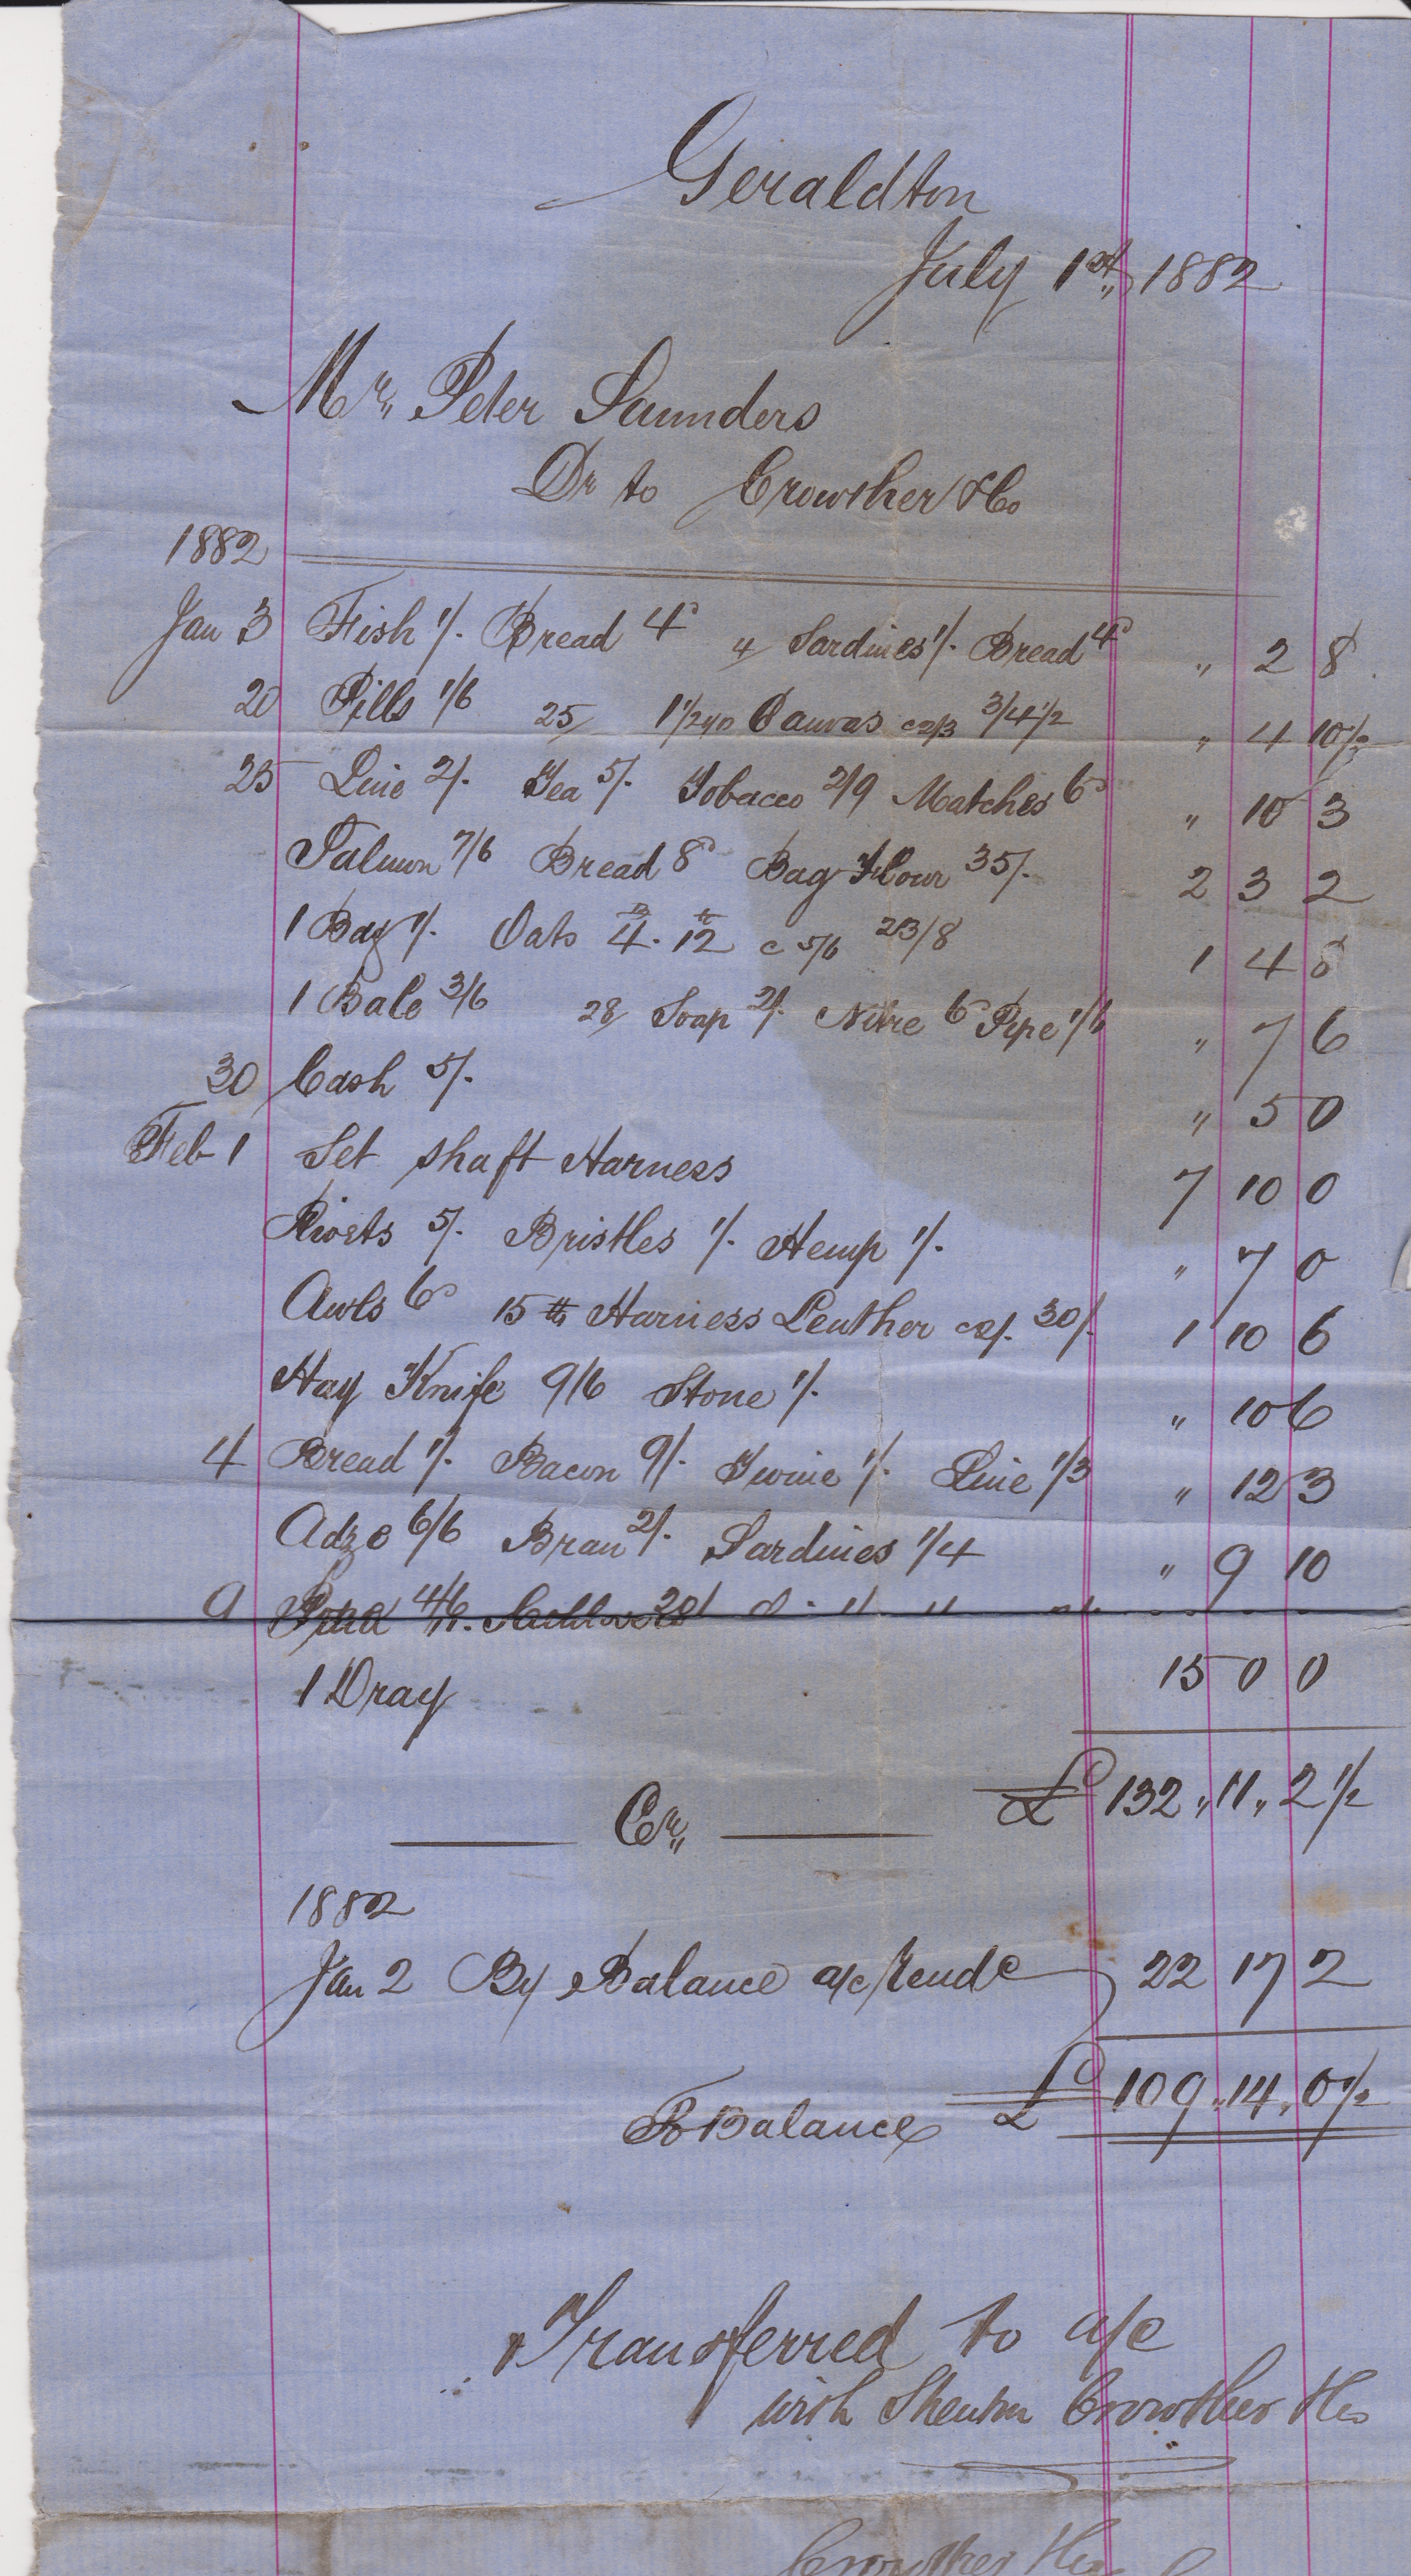 Geraldton
July 1st, 1882
Mr, Peter Saunders
Dr to Crowther & Co
1882
Jan 3 Fish 1/- Bread 4d 4/ Sardines 1/- Bread 4d " 2 8
20 Pills 1/6 25/ 1 1/2 yd Canvas @ 2/3 3/4 1/2 " 4 10 1/2
25 Line 2/- Tea 5/- Tobacco 2/9 Matches 6d " 10 3
Salmon 7/6 Bread 8d Bag Flour 35/- 2 3 2
1 Bag 1/- Oats 4 B. 12 lb @ 5/6 23/8 1 4 8
1 Bale 3/6 28/ Soap 2/- Nitre 6d Pipe 1/6 " 7 6
30 Cash 5/- " 5 0
Feb 1 Set shaft Harness 7 10 0
Rivets 5/- Bristles 1/- Hemp 1/- " 7 0
Awls 6d 15 lb Harness Leather @ 2/- 30/- 1 10 6
Hay Knife 9/6 Stone 1/- " 10 6
4 Bread 1/- Bacon 9/- Twine 1/- Line 1/3 " 12 3
Adze 6/6 Bran 2/- Sardines 1/4 " 9 10
9
1 Dray 15 0 0
£ 132 " 11 " 2 1/2
Cr,,
1882
Jan 2 By Balance a/c rendd 22 17 2
To Balance £ 109 " 14 " 0 1/2
Transferred to a/c
with Shenton Crowther & Co
Crowther & Co